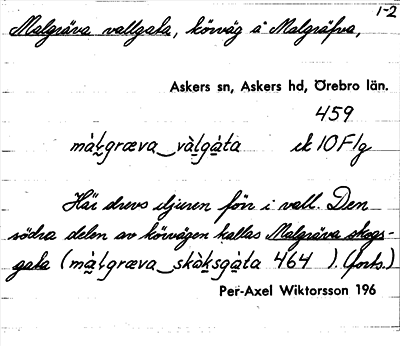 1-2
Malgräva vallgata, körväg å Malgräfva,
Askers sn, Askers hd, Örebro län.
459
màlgræva‿vàlgàta ek 10F/g
Här drevs djuren förr i vall. Den
södra delen av körvägen kallas Malgräva skogs-
gata (màlgræva‿skàksgàta 464 ). (forts.)
Per-Axel Wiktorsson 196